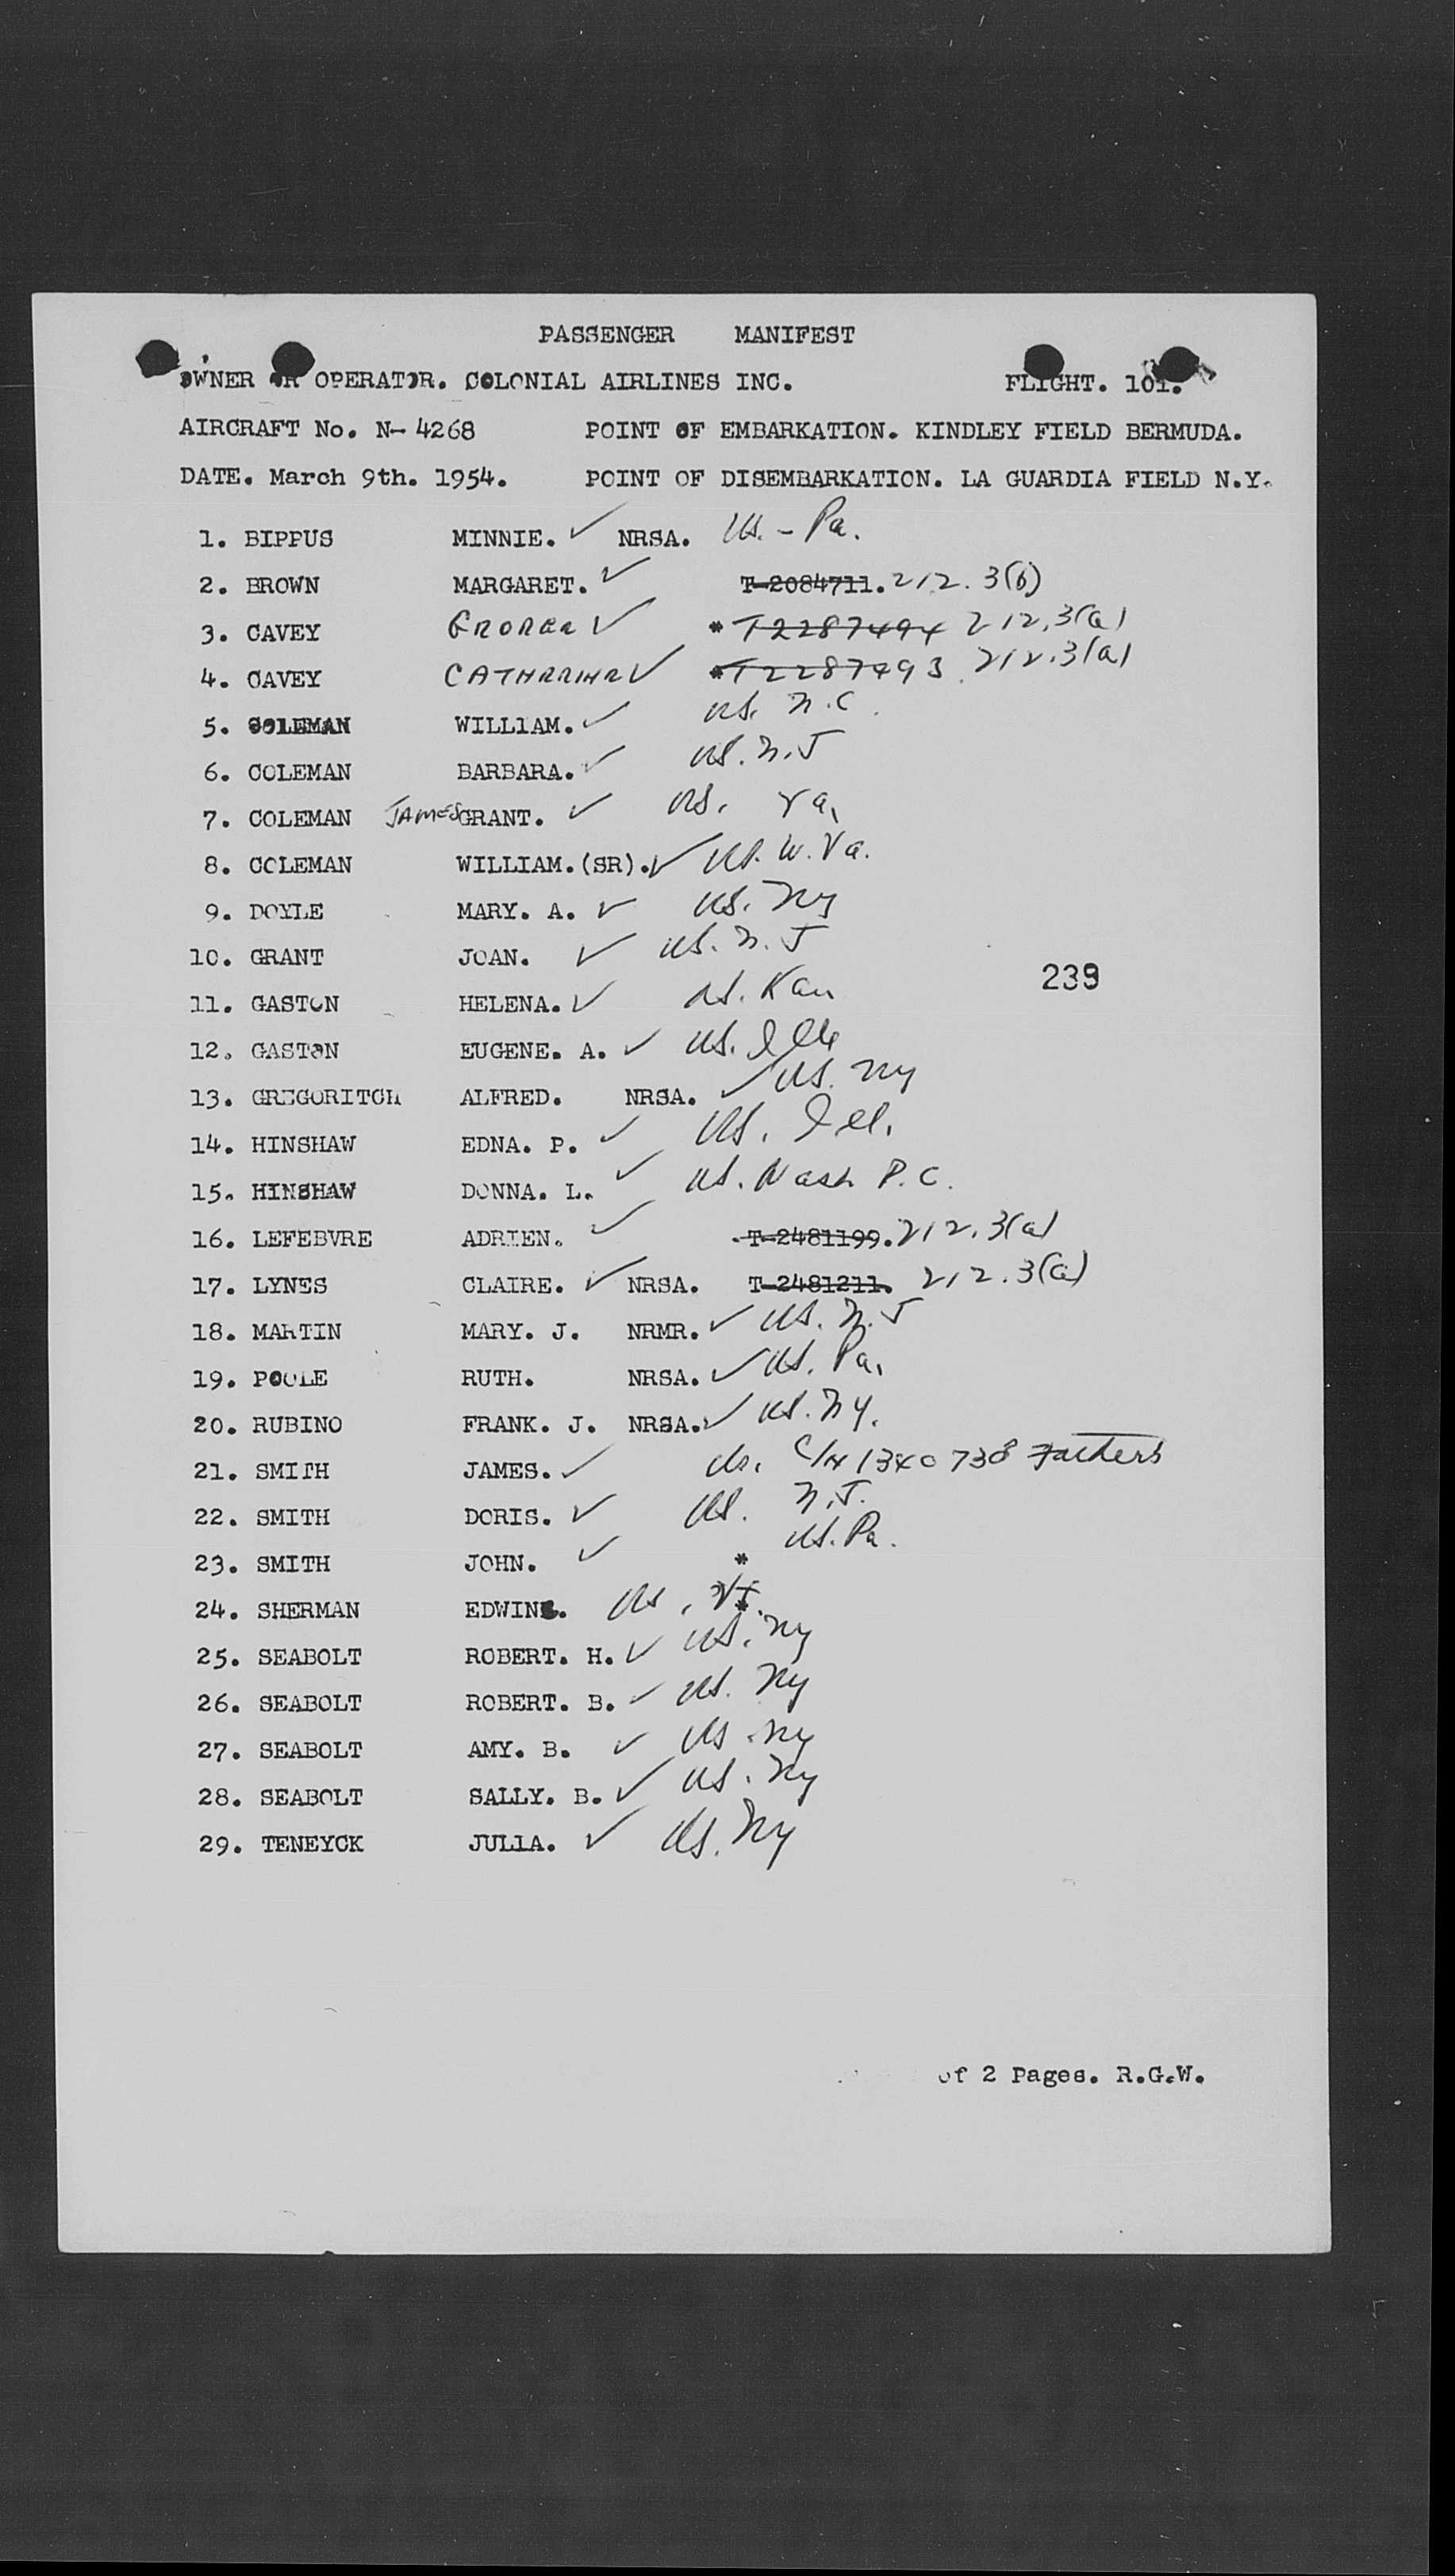 PASSENGER MANIFEST
OWNER OR OPERATOR. COLONIAL AIRLINES INC. FLIGHT. 101.
AIRCRAFT No. N- 4268 POINT OF EMBARKATION. KINDLEY FIELD BERMUDA.
DATE. March 9th. 1954. POINT OF DISEMBARKATION. LA GUARDIA FIELD N.Y.
1. BIPPUS MINNIE. ✓ NRSA. US. - Pa.
2. BROWN MARGARET. ✓ T-2084711. 212.3(b)
3. CAVEY GEORGE ✓ * T2287494 212.3(a)
4. CAVEY CATHERINE ✓ *T2287493 212.3(a)
5. COLEMAN WILLIAM. ✓ US. N.C.
6. COLEMAN BARBARA. ✓ US. N.J
7. COLEMAN JAMES GRANT. ✓ US. Va.
8. COLEMAN WILLIAM. (SR). ✓ US. W. Va.
9. DOYLE MARY. A. ✓ US. Ny
10. GRANT JOAN. ✓ US. N. J
239
11. GASTON HELENA. ✓ US. Kan
12. GASTON EUGENE. A. ✓ US. Ills
13. GREGORITCH ALFRED. NRSA. ✓ US. Ny
14. HINSHAW EDNA. P. ✓ US. Ill.
15. HINSHAW DONNA. L. ✓ US. Wash D.C.
16. LEFEBVRE ADRIEN. ✓ T-2481199. 212.3(a)
17. LYNES CLAIRE. ✓ NRSA. T-2481211. 212.3(a)
18. MARTIN MARY. J. NRMR. ✓ US. N.J
19. POOLE RUTH. NRSA. ✓ US. Pa.
20. RUBINO FRANK. J. NRSA. ✓ US. NY.
21. SMITH JAMES. ✓ US. C/N 1340738 Fathers
22. SMITH DORIS. ✓ US. N.J.
23. SMITH JOHN. ✓ * US. Pa.
24. SHERMAN EDWIN. US. VT. *
25. SEABOLT ROBERT. H. ✓ US. Ny
26. SEABOLT ROBERT. B. ✓ US. Ny
27. SEABOLT AMY. B. ✓ US. Ny
28. SEABOLT SALLY. B. ✓ US. Ny
29. TENEYCK JULIA. ✓ US. Ny
of 2 Pages. R.G.W.